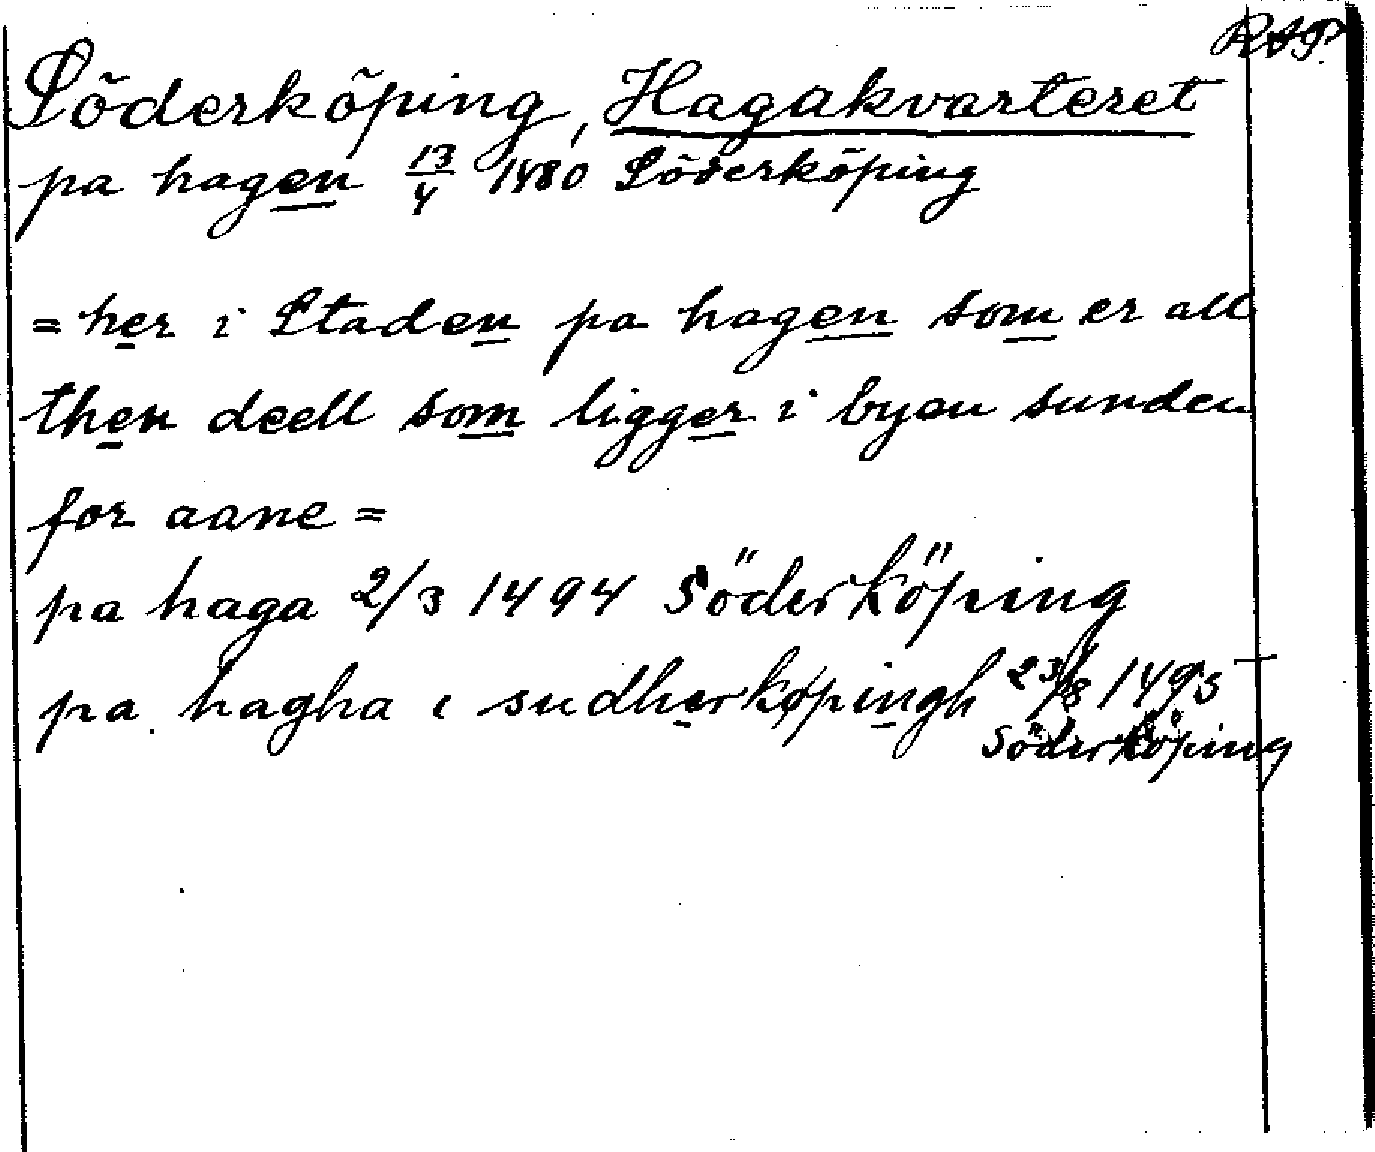 RAP.
Söderköping, Hagakvarteret
pa hagen 13/4 1480 Söderköping
= her i Staden pa hagen som er all
then deell som ligger i byen sunden
for aane =
pa haga 2/3 1494 Söderköping
pa hagha i sudherköpingh 23/8 1495
Söderköping